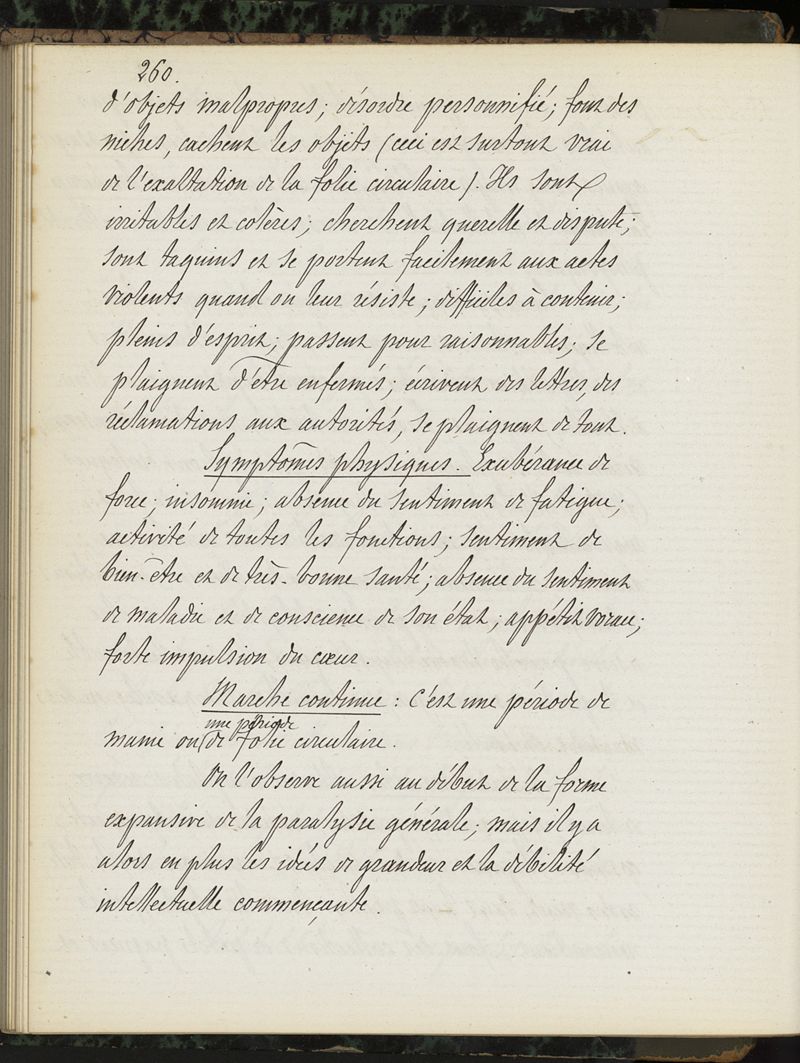 260.
d'objets malpropres; désordre personnifié; font des
niches, cachent les objets (ceci est surtout vrai
de l'exaltation de la folie circulaire). Ils sont
irritables et colères; cherchent querelle et dispute;
sont taquins et se portent facilement aux actes
violents quand on leur résiste; difficiles à contenir;
pleins d'esprit; passent pour raisonnables; se
plaignent d'être enfermés; écrivent des lettres, des
réclamations aux autorités, se plaignent de tout.
Symptômes physiques. Exubérance de
force; insomnie; absence du sentiment de fatigue;
activité de toutes les fonctions; sentiment de
bien-être et de très-bonne santé; absence du sentiment
de maladie et de conscience de son état; appétit vorace;
forte impulsion du cœur.
Marche continue : C'est une période de
manie ou une période de folie circulaire.
On l'observe aussi au début de la forme
expansive de la paralysie générale; mais il y a
alors en plus les idées de grandeur et la débilité
intellectuelle commençante.